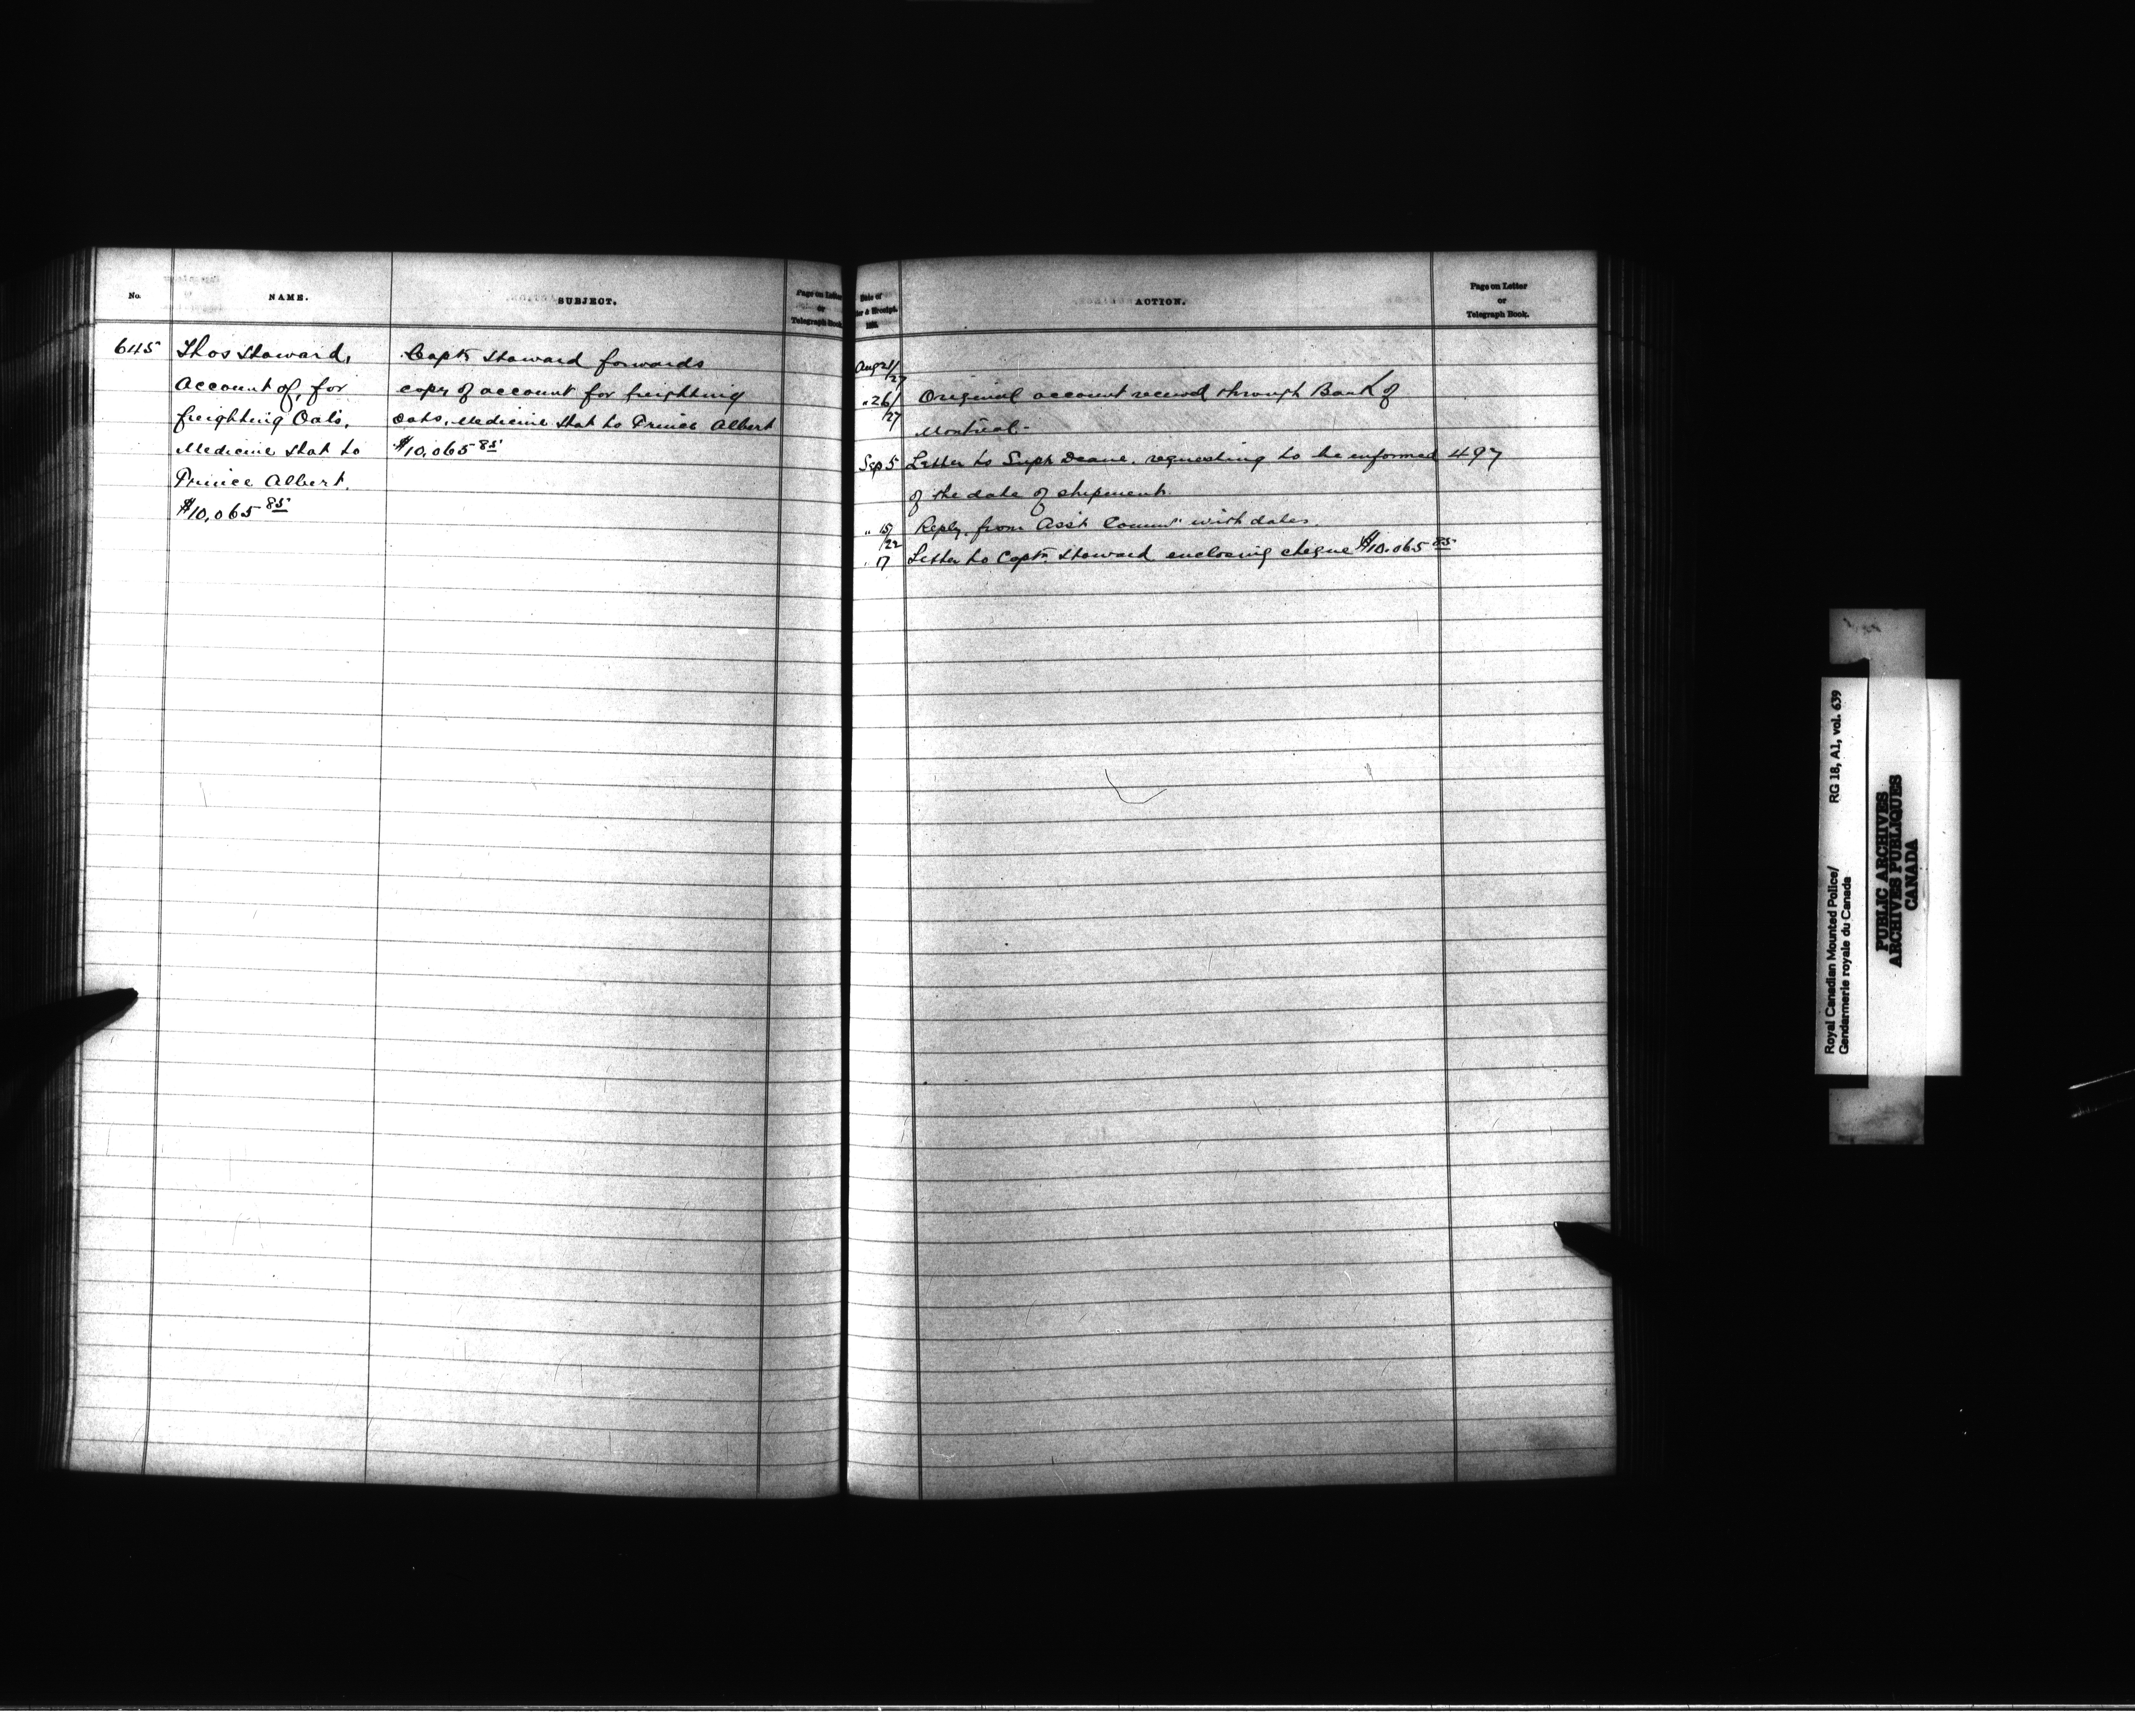 No.
NAME.
SUBJECT.
Page on Letter
or
Telegraph Book.
645
Thos Howard,
Account of, for
freighting Oats,
Medicine Hat to
Prince Albert.
$10,065 85
Capt. Howard forwards
copy of account for freighting
oats, Medicine Hat to Prince Albert
$10,065 85
Date of
ACTION.
Page on Letter
or
Telegraph Book.
Aug 21/27
" 26/27 Original account received through Bank of
Montreal-
Sep 5 Letter to Supt Deane, requesting to be informed 497
of the date of shipment.
" 15/22 Reply from Asst Commr with dates.
" 17 Letter to Capt. Howard enclosing cheque $10,065 85
Royal Canadian Mounted Police/
Gendarmerie royale du Canada
RG 18, A1, vol. 639
PUBLIC ARCHIVES
ARCHIVES PUBLIQUES
CANADA